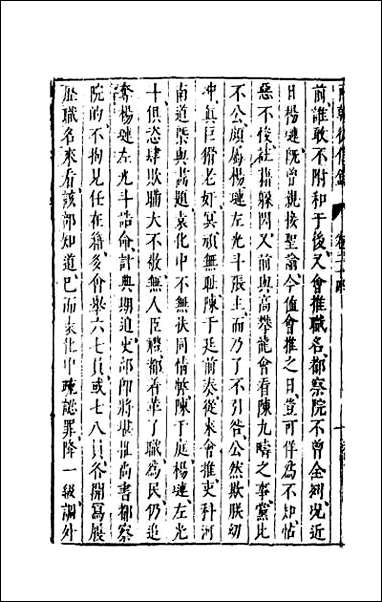 前誰敢不附和于後又會推職名都察院不曾全列况近
日楊漣旣曾親接聖諭今值會推之日豈可佯為不知怙
惡不悛社藉躲閃又前與高攀龍會看陳九疇之事黨比
不公頗廚楊漣左光斗張主而乃不引咎公然欺朕幼
冲真巨猾老奸冥頑無恥陳于廷前奏從來會推吏科河
南道與聞題袁化中不無扶同情弊陳于庭楊漣左光
十俱恣肆欺瞞大不敬無人臣禮都着革了職為民仍追
奪楊漣左光斗誥命計典期迫吏部卽將堪推尚書都察
院的不拘見任在籍多會舉六七員或七八員各開寫履
歷職名來看該部知道已而袁化中疏認罪降一級調外